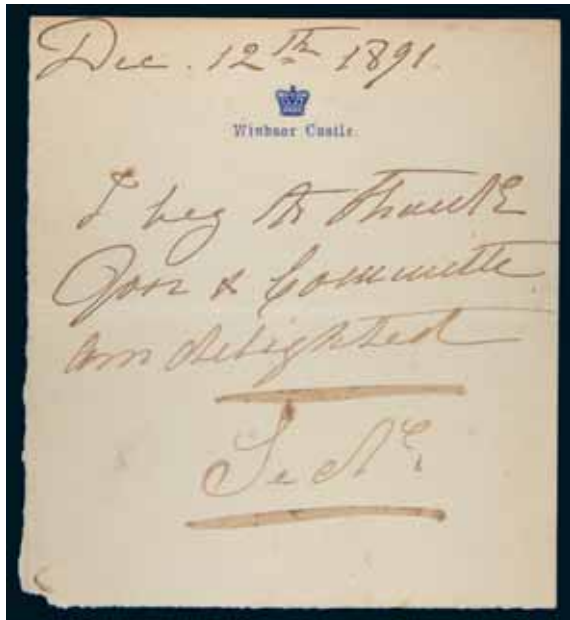 Dec. 12th 1891.
Windsor Castle.
I beg to thank
you & Committee
am delighted